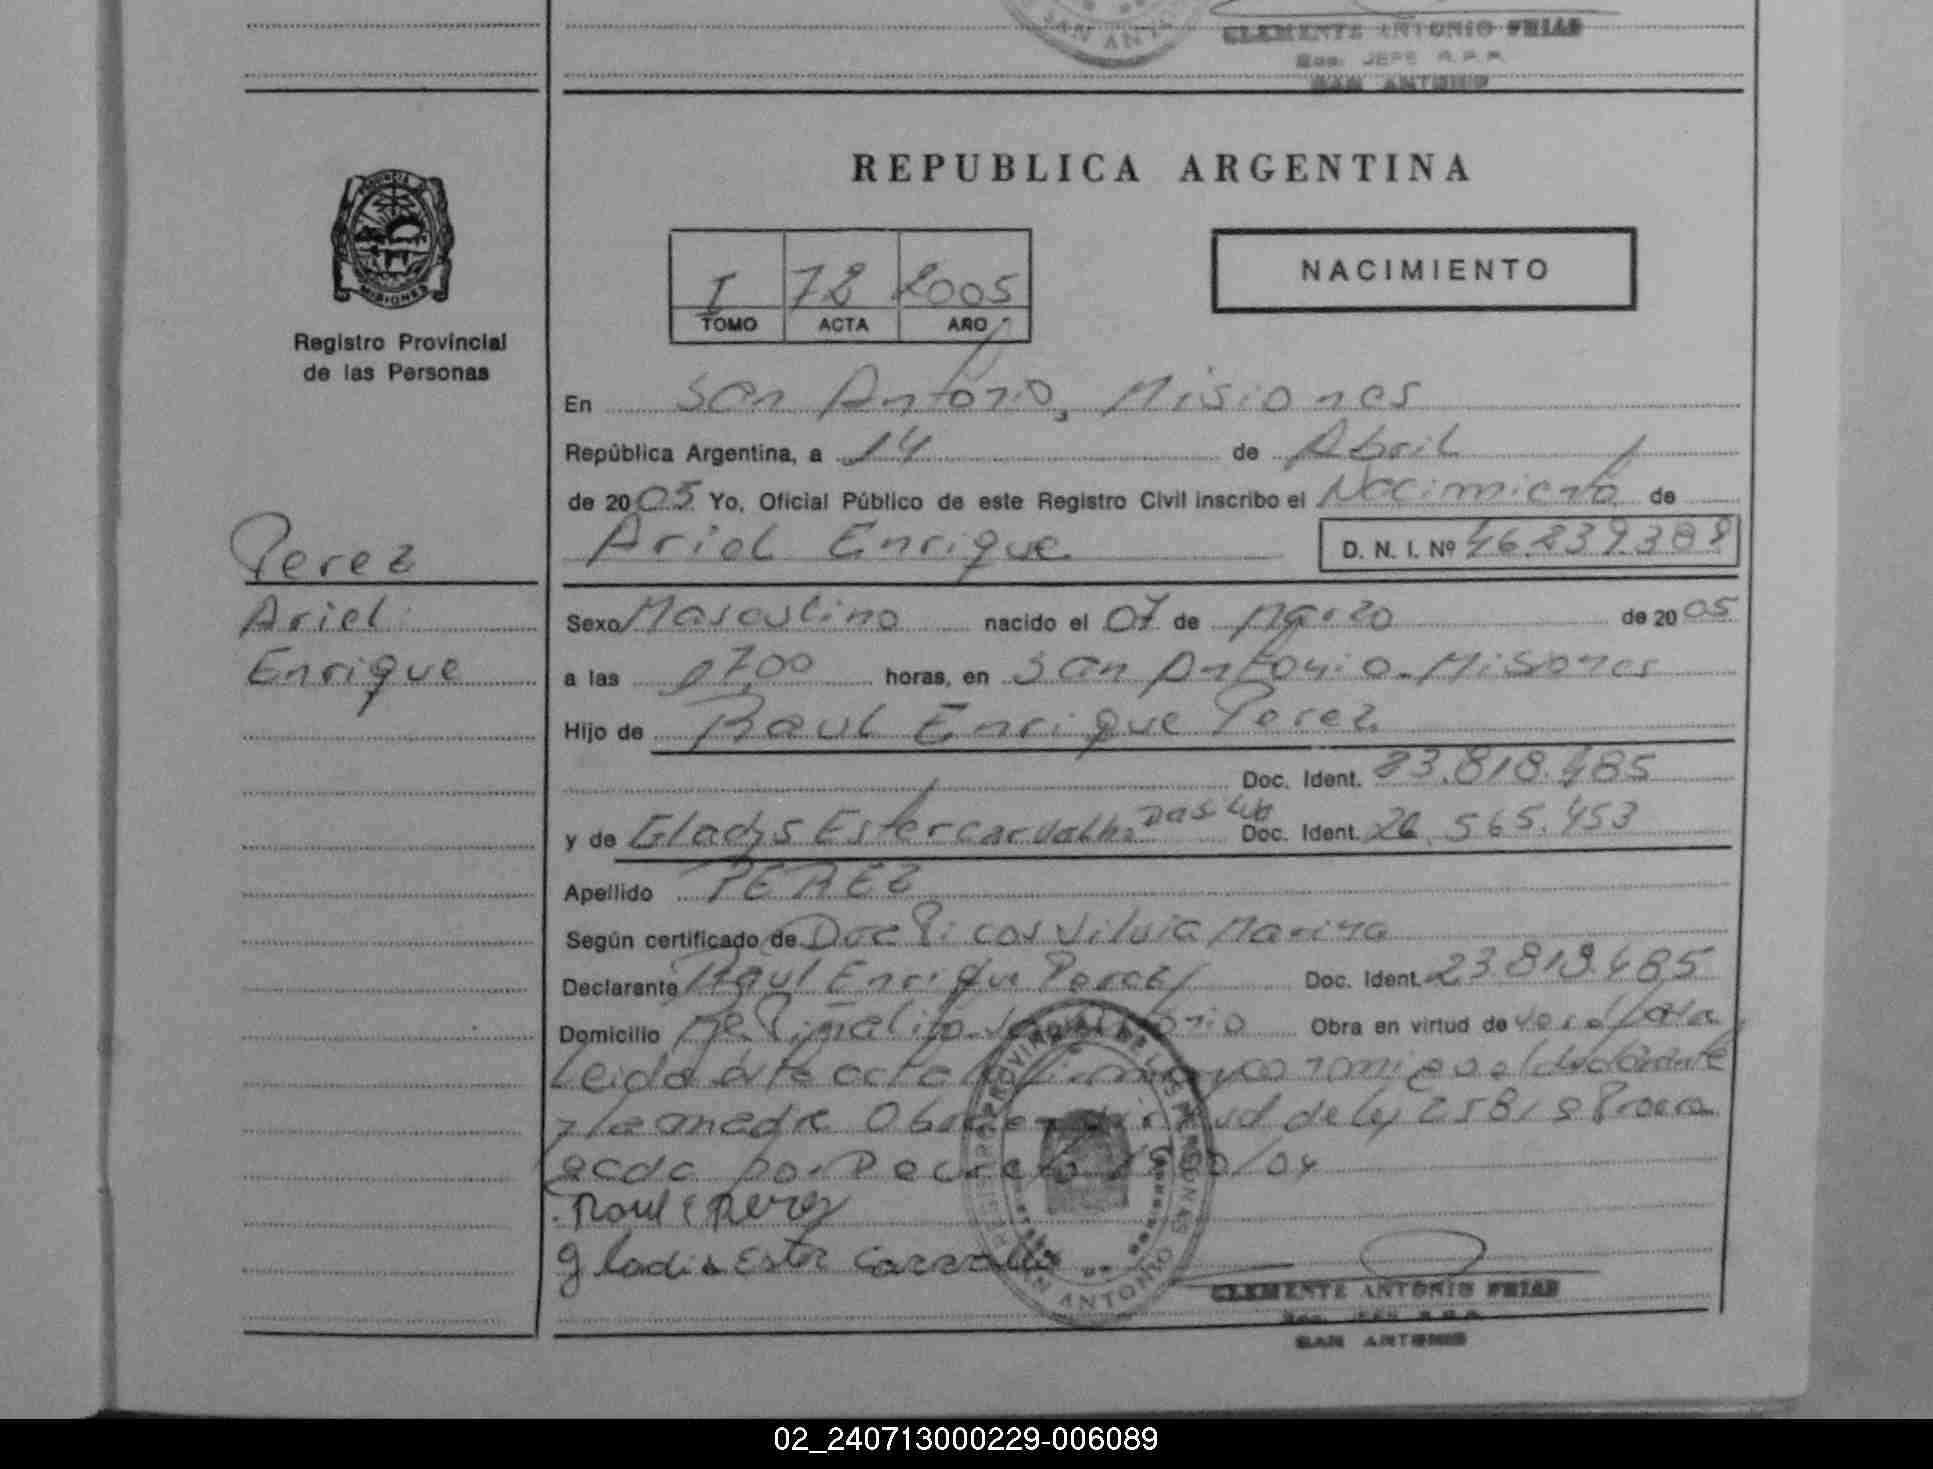 SAN ANT
CLEMENTE ANTONIO FRIAS
JEFE R.P.P.
SAN ANTONIO
REPUBLICA ARGENTINA
MISIONES
I 78 2005
TOMO ACTA AÑO
NACIMIENTO
Registro Provincial
de las Personas
En San Antonio, Misiones
República Argentina, a 14 de Abril
de 2005 Yo, Oficial Público de este Registro Civil inscribo el Nacimiento de
Perez
Ariel Enrique D. N. I. Nº 46.839.389
Ariel
Sexo Masculino nacido el 07 de Marzo de 2005
Enrique
a las 17,00 horas, en San Antonio - Misiones
Hijo de Raul Enrique Perez
Doc. Ident. 23.818.485
y de Gladys Ester carvalho Da Silva Doc. Ident. 26.565.453
Apellido PEREZ
Según certificado de Silvia Marina
Declarante Raul Enrique Perez Doc. Ident. 23.818.485
Domicilio San Antonio Obra en virtud de
Leida este acta la firman conmigo el declarante
y la madre Obra en virtud de ley 25819 Prorro
gada por Decreto /04
Raul E Perez
Gladis Ester Carvallo
REGISTRO PROVINCIAL DE LAS PERSONAS
SAN ANTONIO
CLEMENTE ANTONIO FRIAS
SAN ANTONIO
02_240713000229-006089